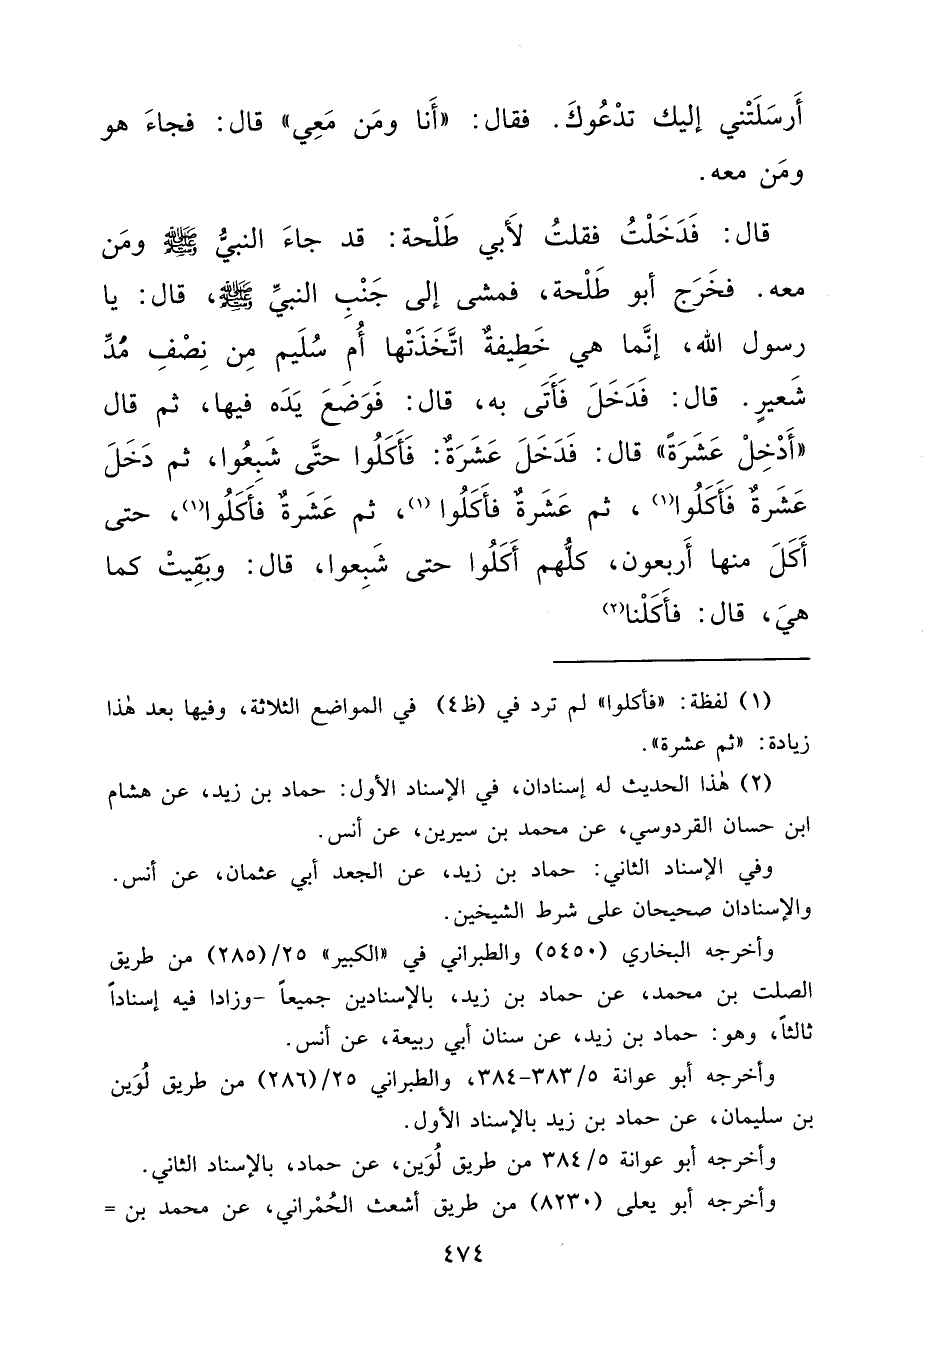 أَرسَلَتْني إليك تدْعُوكَ. فقال: «أَنا ومَن مَعِي» قال: فجاءَ هو
ومَن معه.
قال: فَدَخَلْتُ فقلتُ لأَبي طَلْحة: قد جاءَ النبيُّ ﷺ ومَن
معه. فخَرَج أبو طَلْحة، فمشى إلى جَنْبِ النبيِّ ﷺ، قال: يا
رسول الله، إنَّما هي خَطِيفةٌ اتَّخَذَتْها أُم سُلَيم مِن نِصْفِ مُدِّ
شَعيرٍ. قال: فَدَخَلَ فَأَتَى به، قال: فَوَضَعَ يَدَه فيها، ثم قال
«أَدْخِلْ عَشَرَةً» قال: فَدَخَلَ عَشَرَةٌ: فَأَكَلُوا حتَّى شَبِعُوا، ثم دَخَلَ
عَشَرةٌ فَأَكَلُوا(١) ، ثم عَشَرةٌ فأَكَلُوا (١)، ثم عَشَرةٌ فأَكَلُوا(١)، حتى
أَكَلَ منها أَربعون، كلُّهم أَكَلُوا حتى شَبِعوا، قال: وبَقِيتْ كما
هيَ، قال: فأَكَلْنا(٢)
(١) لفظة: «فأكلوا» لم ترد في (ظ٤) في المواضع الثلاثة، وفيها بعد هٰذا
زيادة: «ثم عشرة».
(٢) هٰذا الحديث له إسنادان، في الإسناد الأول: حماد بن زيد، عن هشام
ابن حسان القردوسي، عن محمد بن سيرين، عن أنس.
وفي الإسناد الثاني: حماد بن زيد، عن الجعد أبي عثمان، عن أنس.
والإسنادان صحيحان على شرط الشيخين.
وأخرجه البخاري (٥٤٥٠) والطبراني في «الكبير» ٢٥/(٢٨٥) من طريق
الصلت بن محمد، عن حماد بن زيد، بالإسنادين جميعاً -وزادا فيه إسناداً
ثالثاً، وهو: حماد بن زيد، عن سنان أبي ربيعة، عن أنس.
وأخرجه أبو عوانة ٣٨٣/٥-٣٨٤، والطبراني ٢٥/(٢٨٦) من طريق لُوَين
بن سليمان، عن حماد بن زيد بالإسناد الأول.
وأخرجه أبو عوانة ٣٨٤/٥ من طريق لُوَين، عن حماد، بالإسناد الثاني.
وأخرجه أبو يعلى (٨٢٣٠) من طريق أشعث الحُمْراني، عن محمد بن =
٤٧٤